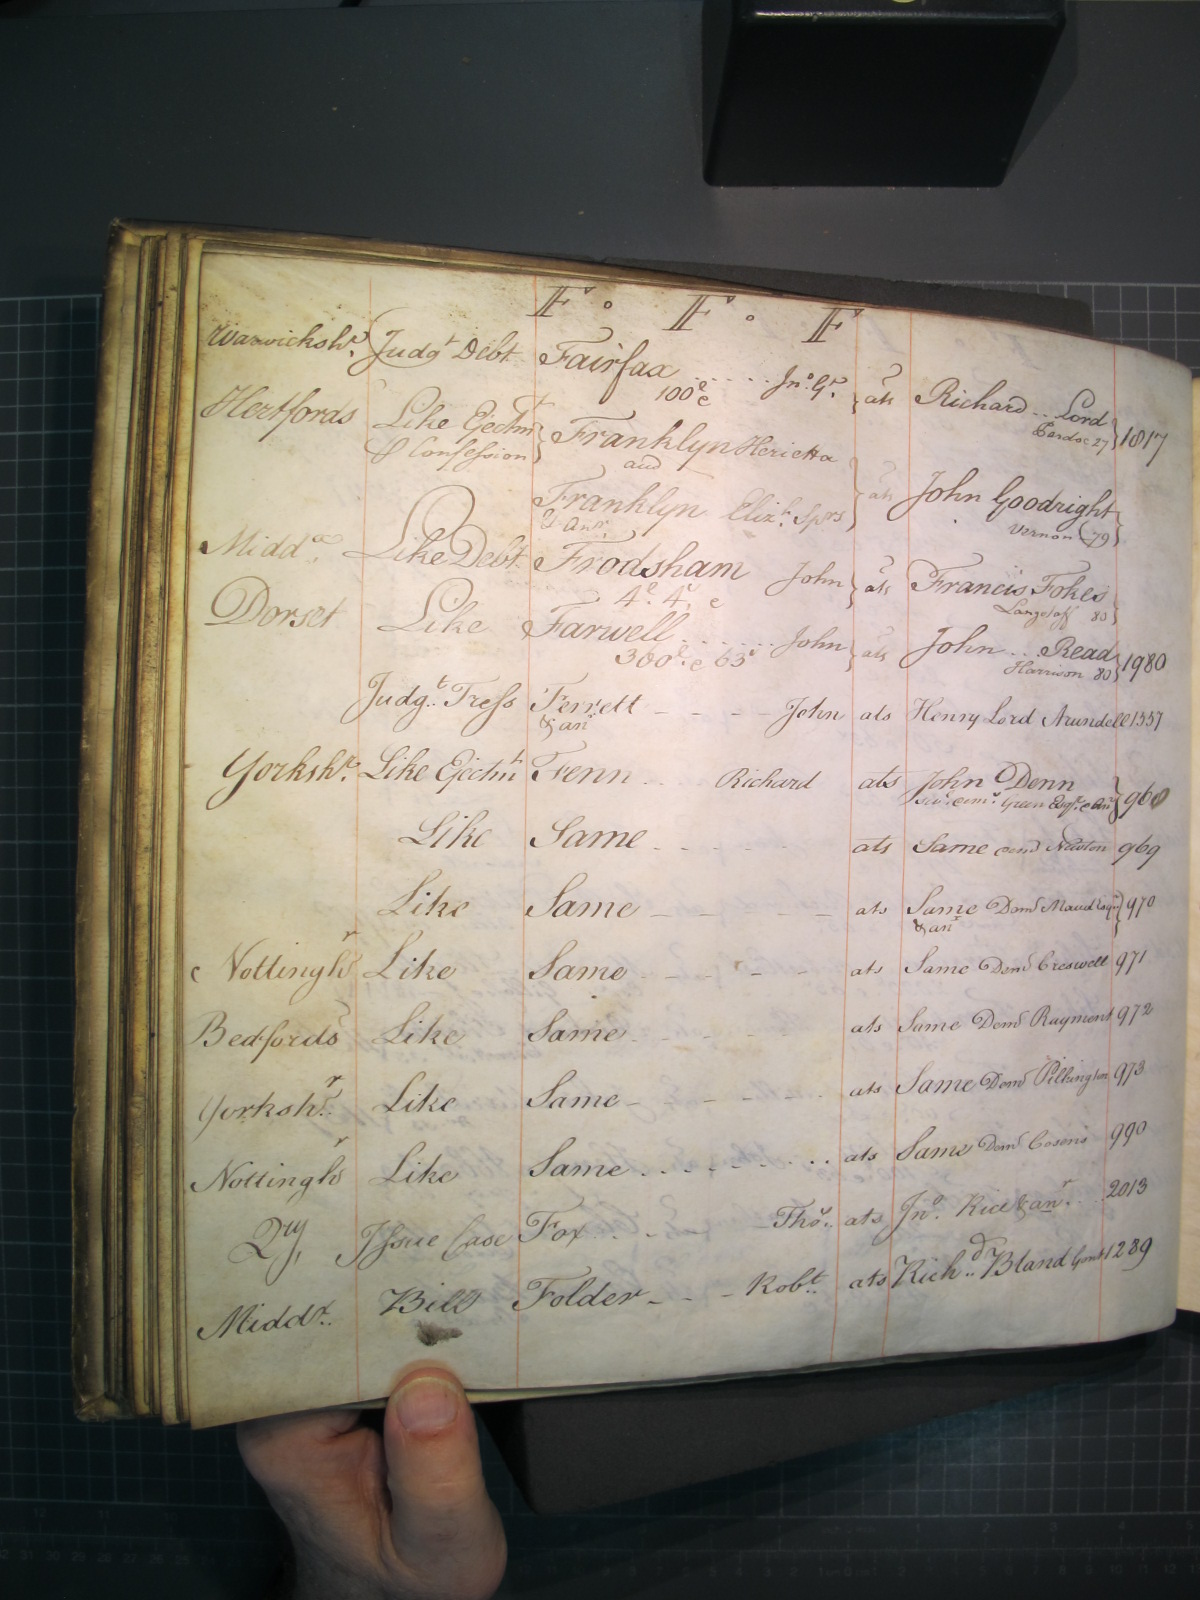 F. F. F
Warwickshr. Judgt Debt Fairfax ..... Jno. Gt. } ats Richard .. Lord
100l c
Hertfords Like Ejectmt } Franklyn Herietta
& Confession and
Franklyn Elizt. Sprs } ats John Goodright
& Anr. Vernon (79)
Middx. Like Debt Frodsham John } ats Francis Fokes
4l. 4s. c 80
Dorset Like Farwell ...... John } ats John ... Read } 1980
300l. c 63s Harrison 80
Judgt. Tress Ferrett - - - - John ats Henry Lord Arundell 1337
& anr
Yorkshr. Like Ejectmt Fenn .. Richard ats John Denn } 960
Green Esqr. & Anr
Like Same - - - - ats Same Demd Newton 969
Like Same - - - - ats Same Demd Maud Esqr } 970
& anr
Nottinghs Like Same - - - - ats Same Demd Creswell 971
Bedfords Like Same - - - - ats Same Demd Rayment 972
Yorkshr. Like Same - - - - ats Same Demd Pilkington 973
Nottinghs Like Same ........ ats Same Demd Cosens 990
Qy, Issue Case Fox .. - - Thos. ats Jno. Rice & anr. .. 2013
Middx. Bill Folder - - - Robt. ats Richd. Bland Gent 1289